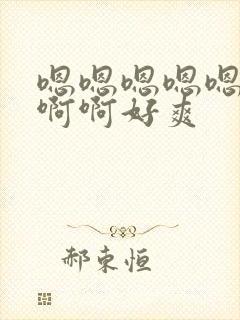 嗯嗯嗯嗯嗯
啊啊好爽
郝东恒